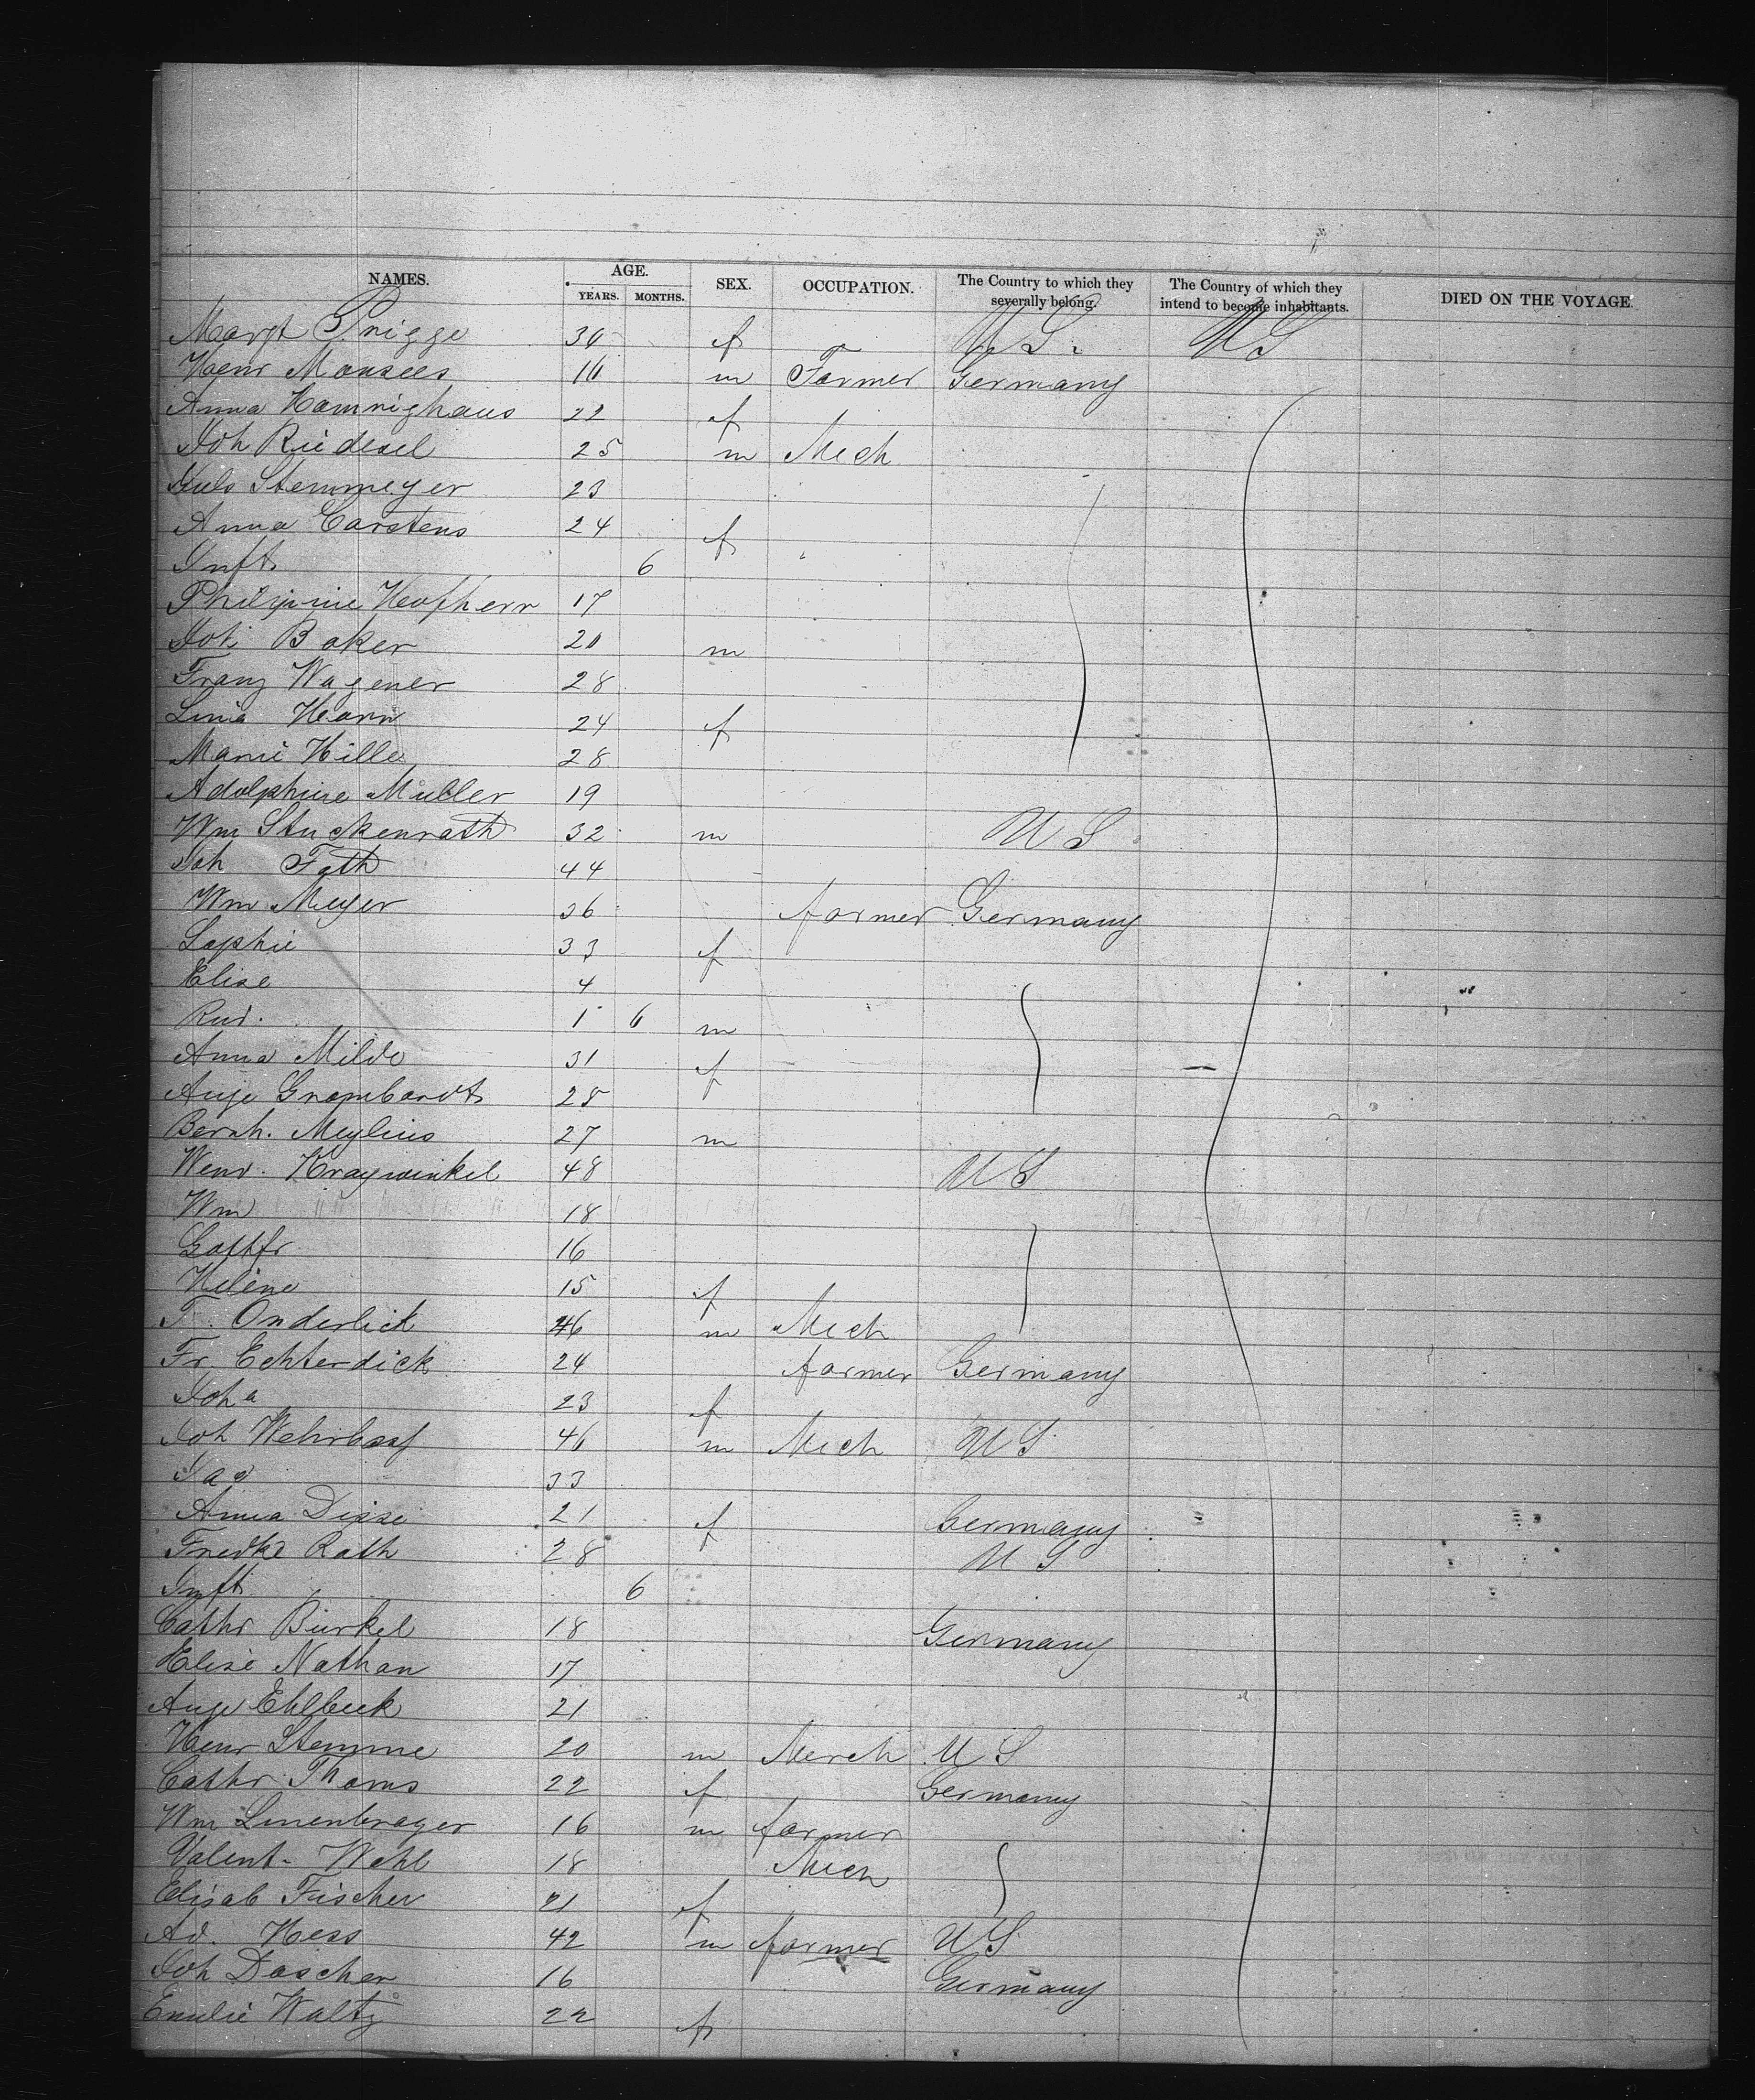 NAMES. AGE. YEARS. MONTHS. SEX. OCCUPATION. The Country to which they severally belong. The Country of which they intend to become inhabitants. DIED ON THE VOYAGE.
Margt Prigge 30 f U S. U S
Henr Monsees 16 m Farmer Germany
Anna Hamrighaus 22 f
Joh Riedesel 25 m Mech
Juls Stemmeyer 23
Anna Carstens 24 f
Inft 6
Philipine Hofherr 17
Joh Baker 20 m
Franz Wagener 28
Lina Horn 24 f
Marie Hille 28
Adolphine Muller 19
Wm Stuckenrath 32 m U S
Joh Fath 44
Wm Meyer 36 farmer Germany
Sophie 33 f
Elise 4
Rud. 1 6 m
Anna Milde 31 f
Auge Grombardt 25
Bernh. Meylius 27 m
Wend. Kraywinkel 48 U S
Wm 18
Gottfr 16
Helene 15 f
F. Onderlick 46 m Mech
Fr. Echterdick 24 farmer Germany
Joha 23 f
Joh Wehrbass 46 m Mech U S
Jac 33
Anna Disse 21 f Germany
Fredke Rath 28 U S
Inft 6
Cathr Burkel 18 Germany
Elise Nathan 17
Auge Ehlbeck 21
Henr Stemme 20 m Merch U S
Cathr Thoms 22 f Germany
Wm Linenbrager 16 m farmer
Valent- Wahl 18 Mech
Elisab Fischer 21 f
Ad. Hess 42 m farmer U S
Joh Doscher 16 Germany
Emilie Waltz 22 f